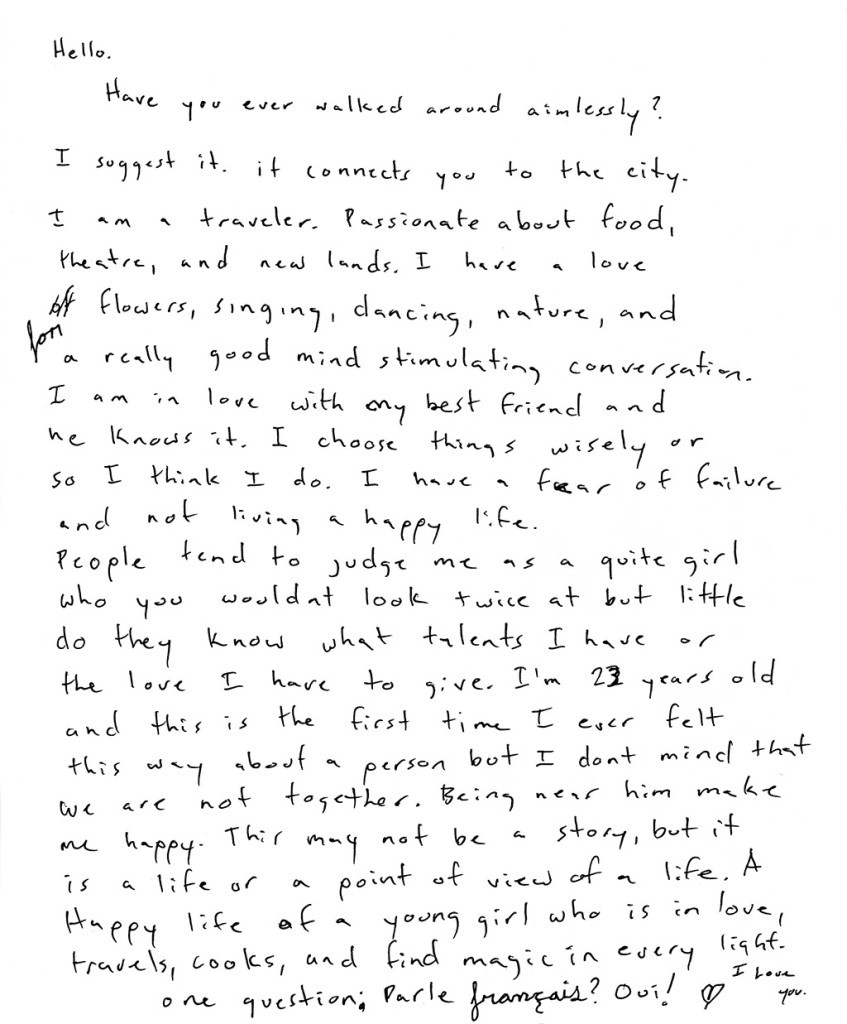 Hello.
Have you ever walked around aimlessly?
I suggest it. it connects you to the city.
I am a traveler. Passionate about food,
theatre, and new lands. I have a love
for flowers, singing, dancing, nature, and
a really good mind stimulating conversation.
I am in love with my best friend and
he knows it. I choose things wisely or
so I think I do. I have a fear of failure
and not living a happy life.
People tend to judge me as a quite girl
who you wouldnt look twice at but little
do they know what talents I have or
the love I have to give. I'm 23 years old
and this is the first time I ever felt
this way about a person but I dont mind that
we are not together. Being near him make
me happy. This may not be a story, but it
is a life or a point of view of a life. A
Happy life of a young girl who is in love,
travels, cooks, and find magic in every light.
one question; Parle français? Oui! ♡ I Love
you.